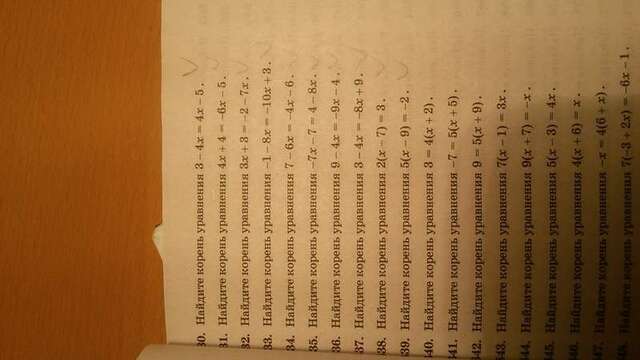 30. Найдите корень уравнения 3 – 4x = 4x – 5 .
31. Найдите корень уравнения 4x + 4 = –6x – 5 .
32. Найдите корень уравнения 3x + 3 = –2 – 7x .
33. Найдите корень уравнения –1 – 8x = –10x + 3 .
34. Найдите корень уравнения 7 – 6x = –4x – 6 .
35. Найдите корень уравнения –7x – 7 = 4 – 8x .
36. Найдите корень уравнения 9 – 4x = –9x – 4 .
37. Найдите корень уравнения 3 – 4x = –8x + 9 .
38. Найдите корень уравнения 2(x – 7) = 3 .
39. Найдите корень уравнения 5(x – 9) = –2 .
40. Найдите корень уравнения 3 = 4(x + 2) .
41. Найдите корень уравнения –7 = 5(x + 5) .
42. Найдите корень уравнения 9 = 5(x + 9) .
43. Найдите корень уравнения 7(x – 1) = 3x .
44. Найдите корень уравнения 9(x + 7) = –x .
45. Найдите корень уравнения 5(x – 3) = 4x .
46. Найдите корень уравнения 4(x + 6) = x .
47. Найдите корень уравнения –x = 4(6 + x) .
48. Найдите корень уравнения 7(–3 + 2x) = –6x – 1 .